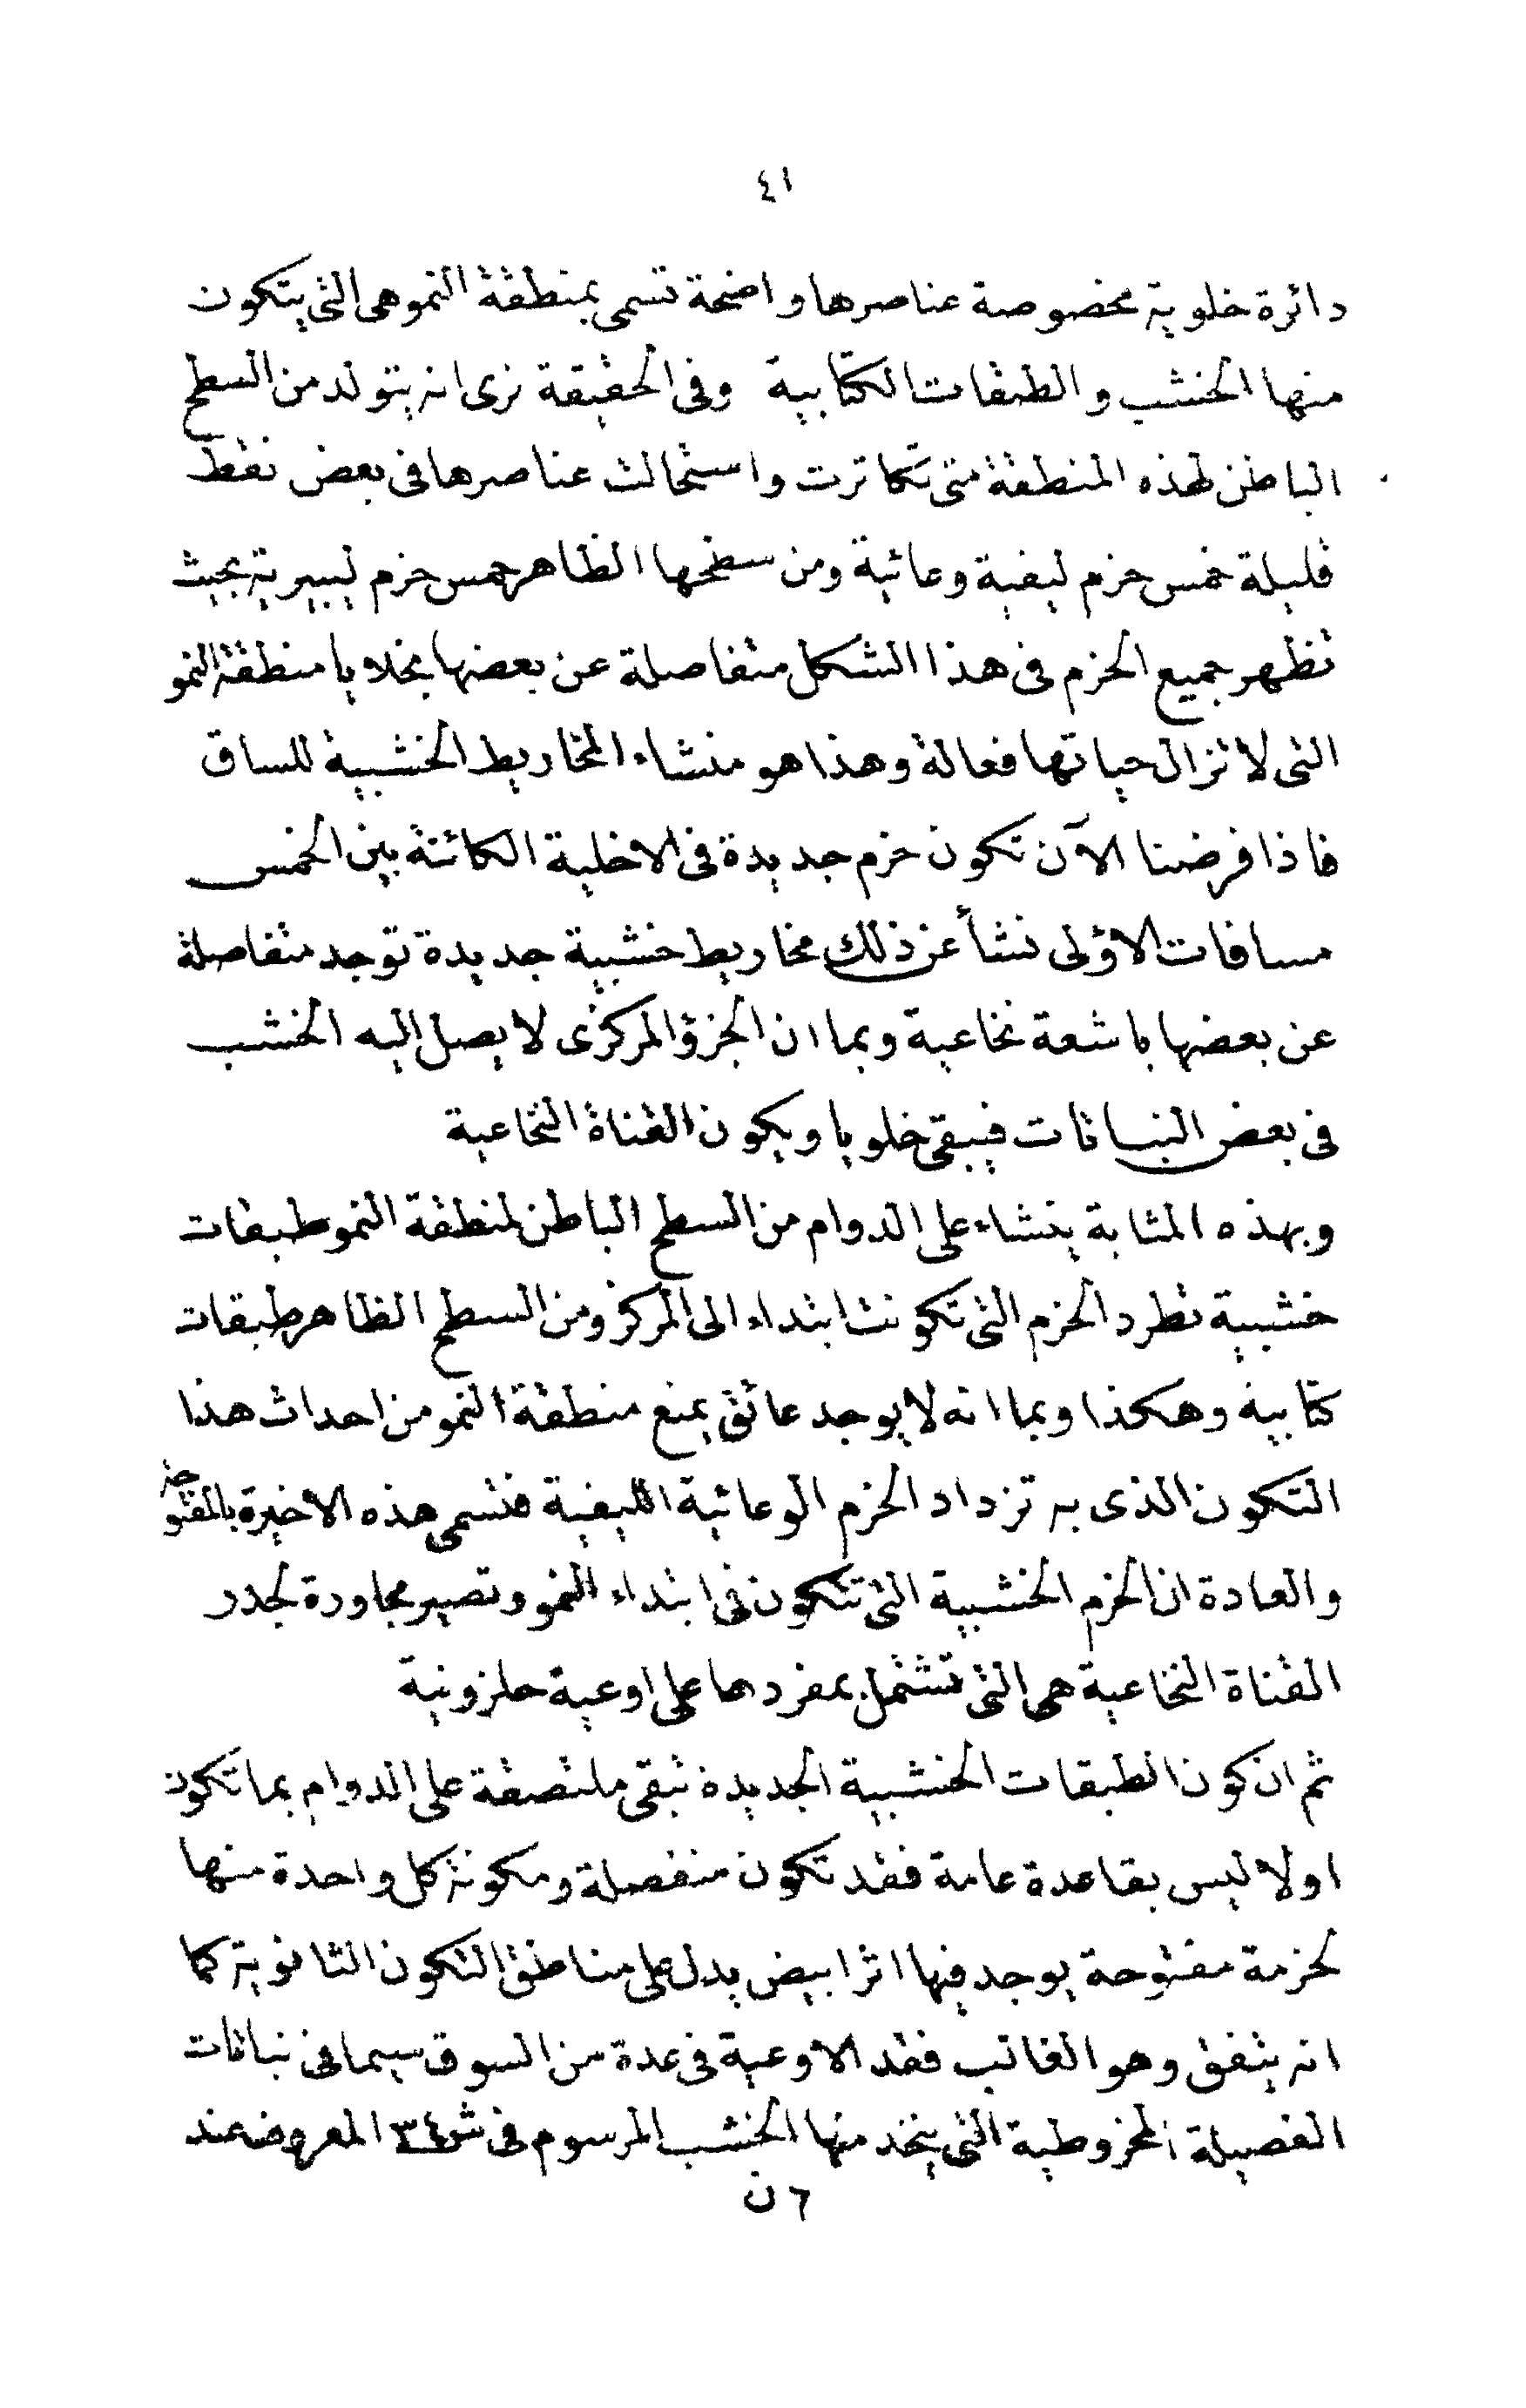 ٤١
دائرة خلوية مخصوصة عناصرها واضحة تسمى بمنطقة النمو هى التى يتكون
منها الخشب والطبقات الكتابية وفى الحقيقة نرى انه يتولد من السطح
الباطن لهذه المنطقة متى تكاثرت واستحالت عناصرها فى بعض نقط
قليلة خمس حزم ليفية وعائية ومن سطحها الظاهر خمس حزم ليبيرية بحيث
تظهر جميع الحزم فى هذا الشكل متفاصلة عن بعضها بخلايا منطقة النمو
التى لا تزال حياتها فعالة وهذا هو منشاء المخاريط الخشبية للساق
فاذا فرضنا الآن تكون حزم جديدة فى الاخلية الكائنة بين الخمس
مسافات الاؤلى نشأ عن ذلك مخاريط خشبية جديدة توجد متفاصلة
عن بعضها باشعة نخاعية وبما ان الجزؤ المركزى لا يصل اليه الخشب
فى بعض النباتات فيبقى خلويا ويكون القناة النخاعية
وبهذه المثابة ينشاء على الدوام من السطح الباطن لمنطقة النمو طبقات
خشبية تطرد الحزم التى تكونت ابتداء الى المركز ومن السطح الظاهر طبقات
كتابية وهكذا وبما انه لا يوجد عائق يمنع منطقة النمو من احداث هذا
التكون الذى به تزداد الحزم الوعائية الليفية فتسمى هذه الاخيرة بالمفتوحة
والعادة ان الحزم الخشبية التى تتكون فى ابتداء النمو وتصير مجاورة لجدر
القناة النخاعية هى التى تشتمل بمفردها على اوعية حلزونية
ثم ان كون الطبقات الخشبية الجديدة تبقى ملتصقة على الدوام بما تكون
اولا ليس بقاعدة عامة فقد تكون منفصلة ومكونة كل واحدة منها
لحزمة مفتوحة يوجد فيها اثر ابيض يدل على مناطق التكون الثانوية كما
انه يتفق وهو الغالب فقد الاوعية فى عدة من السوق سيما فى نباتات
الفصيلة المخروطية التى يتخذ منها الخشب المرسوم فى ش ٣٤ المعروض عند
٦ ن